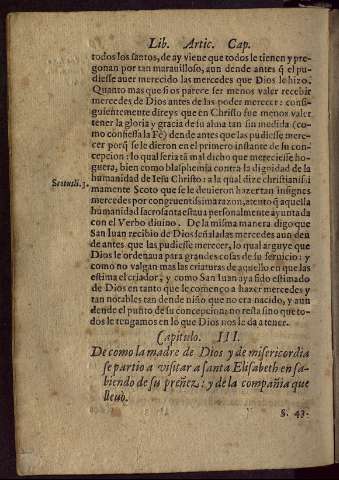 Lib. Artic. Cap.
todos los santos, de ay viene que todos le tienen y pre-
gonan por tan marauilloso, aun dende antes q̃ el pu-
diesse auer merecido las mercedes que Dios le hizo.
Quanto mas que si os parere ser menos valer recebir
mercedes de Dios antes de las poder merecer: consi-
guientemente direys que en Christo fue menos valer
tener la gloria y gracia de su alma tan sin medida (co-
mo confiessa la Fè) dende antes que las pudiesse mere-
cer porq̃ se le dieron en el primero instante de su con-
cepcion: lo qual seria tã mal dicho que mereciesse ho-
guera, bien como blasphemia contra la dignidad de la
humanidad de Iesu Christo: a la qual dize christianissi
Scotus li. 3. mamente Scoto que se le deuieron hazer tan insignes
mercedes por congruentissima razon, atento q̃ aquella
humanidad sacrosanta estaua personalmente ayuntada
con el Verbo diuino. De la misma manera digo que
San Iuan recibio de Dios señaladas mercedes aun den
de antes que las pudiesse merecer, lo qual arguye que
Dios le ordenaua para grandes cosas de su seruicio: y
como no valgan mas las criaturas de aquello en que las
estima el criador, y como San Iuan aya sido estimado
de Dios en tanto que le començo a hazer mercedes y
tan notables tan dende niño que no era nacido, y aun
dende el punto de su concepcion: no resta sino que to-
dos le tengamos en lo que Dios nos le da a tener.
Capitulo. III.
De como la madre de Dios y de misericordia
se partio a visitar a santa Elisabeth en sa-
biendo de su preñez: y de la compañia que
lleuò.
§. 43.